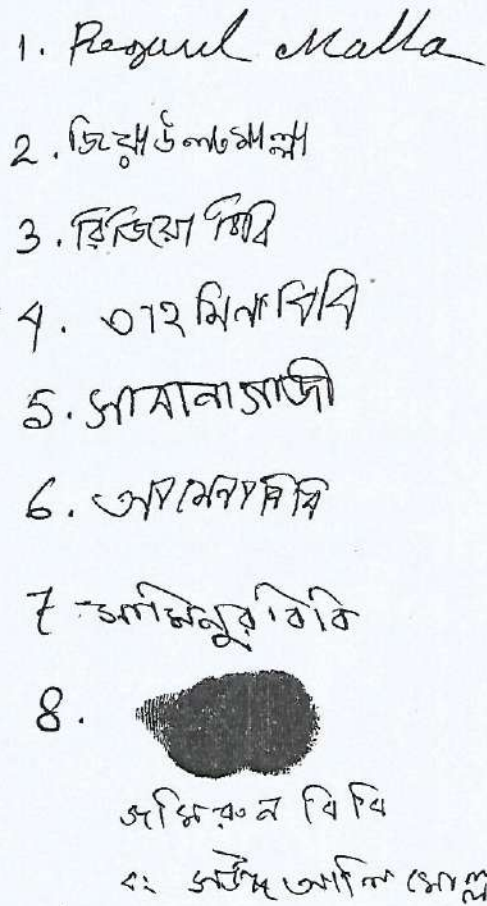 1. Rezaul Molla
2. জিয়াউল মোল্লা
3. রিজিয়া বিবি
4. তাহমিনা বিবি
5. সাবানা গাজী
6. আমেনা বিবি
7 সামিনুর বিবি
8.
জমিরুন বিবি
ব: আলি মোল্লা